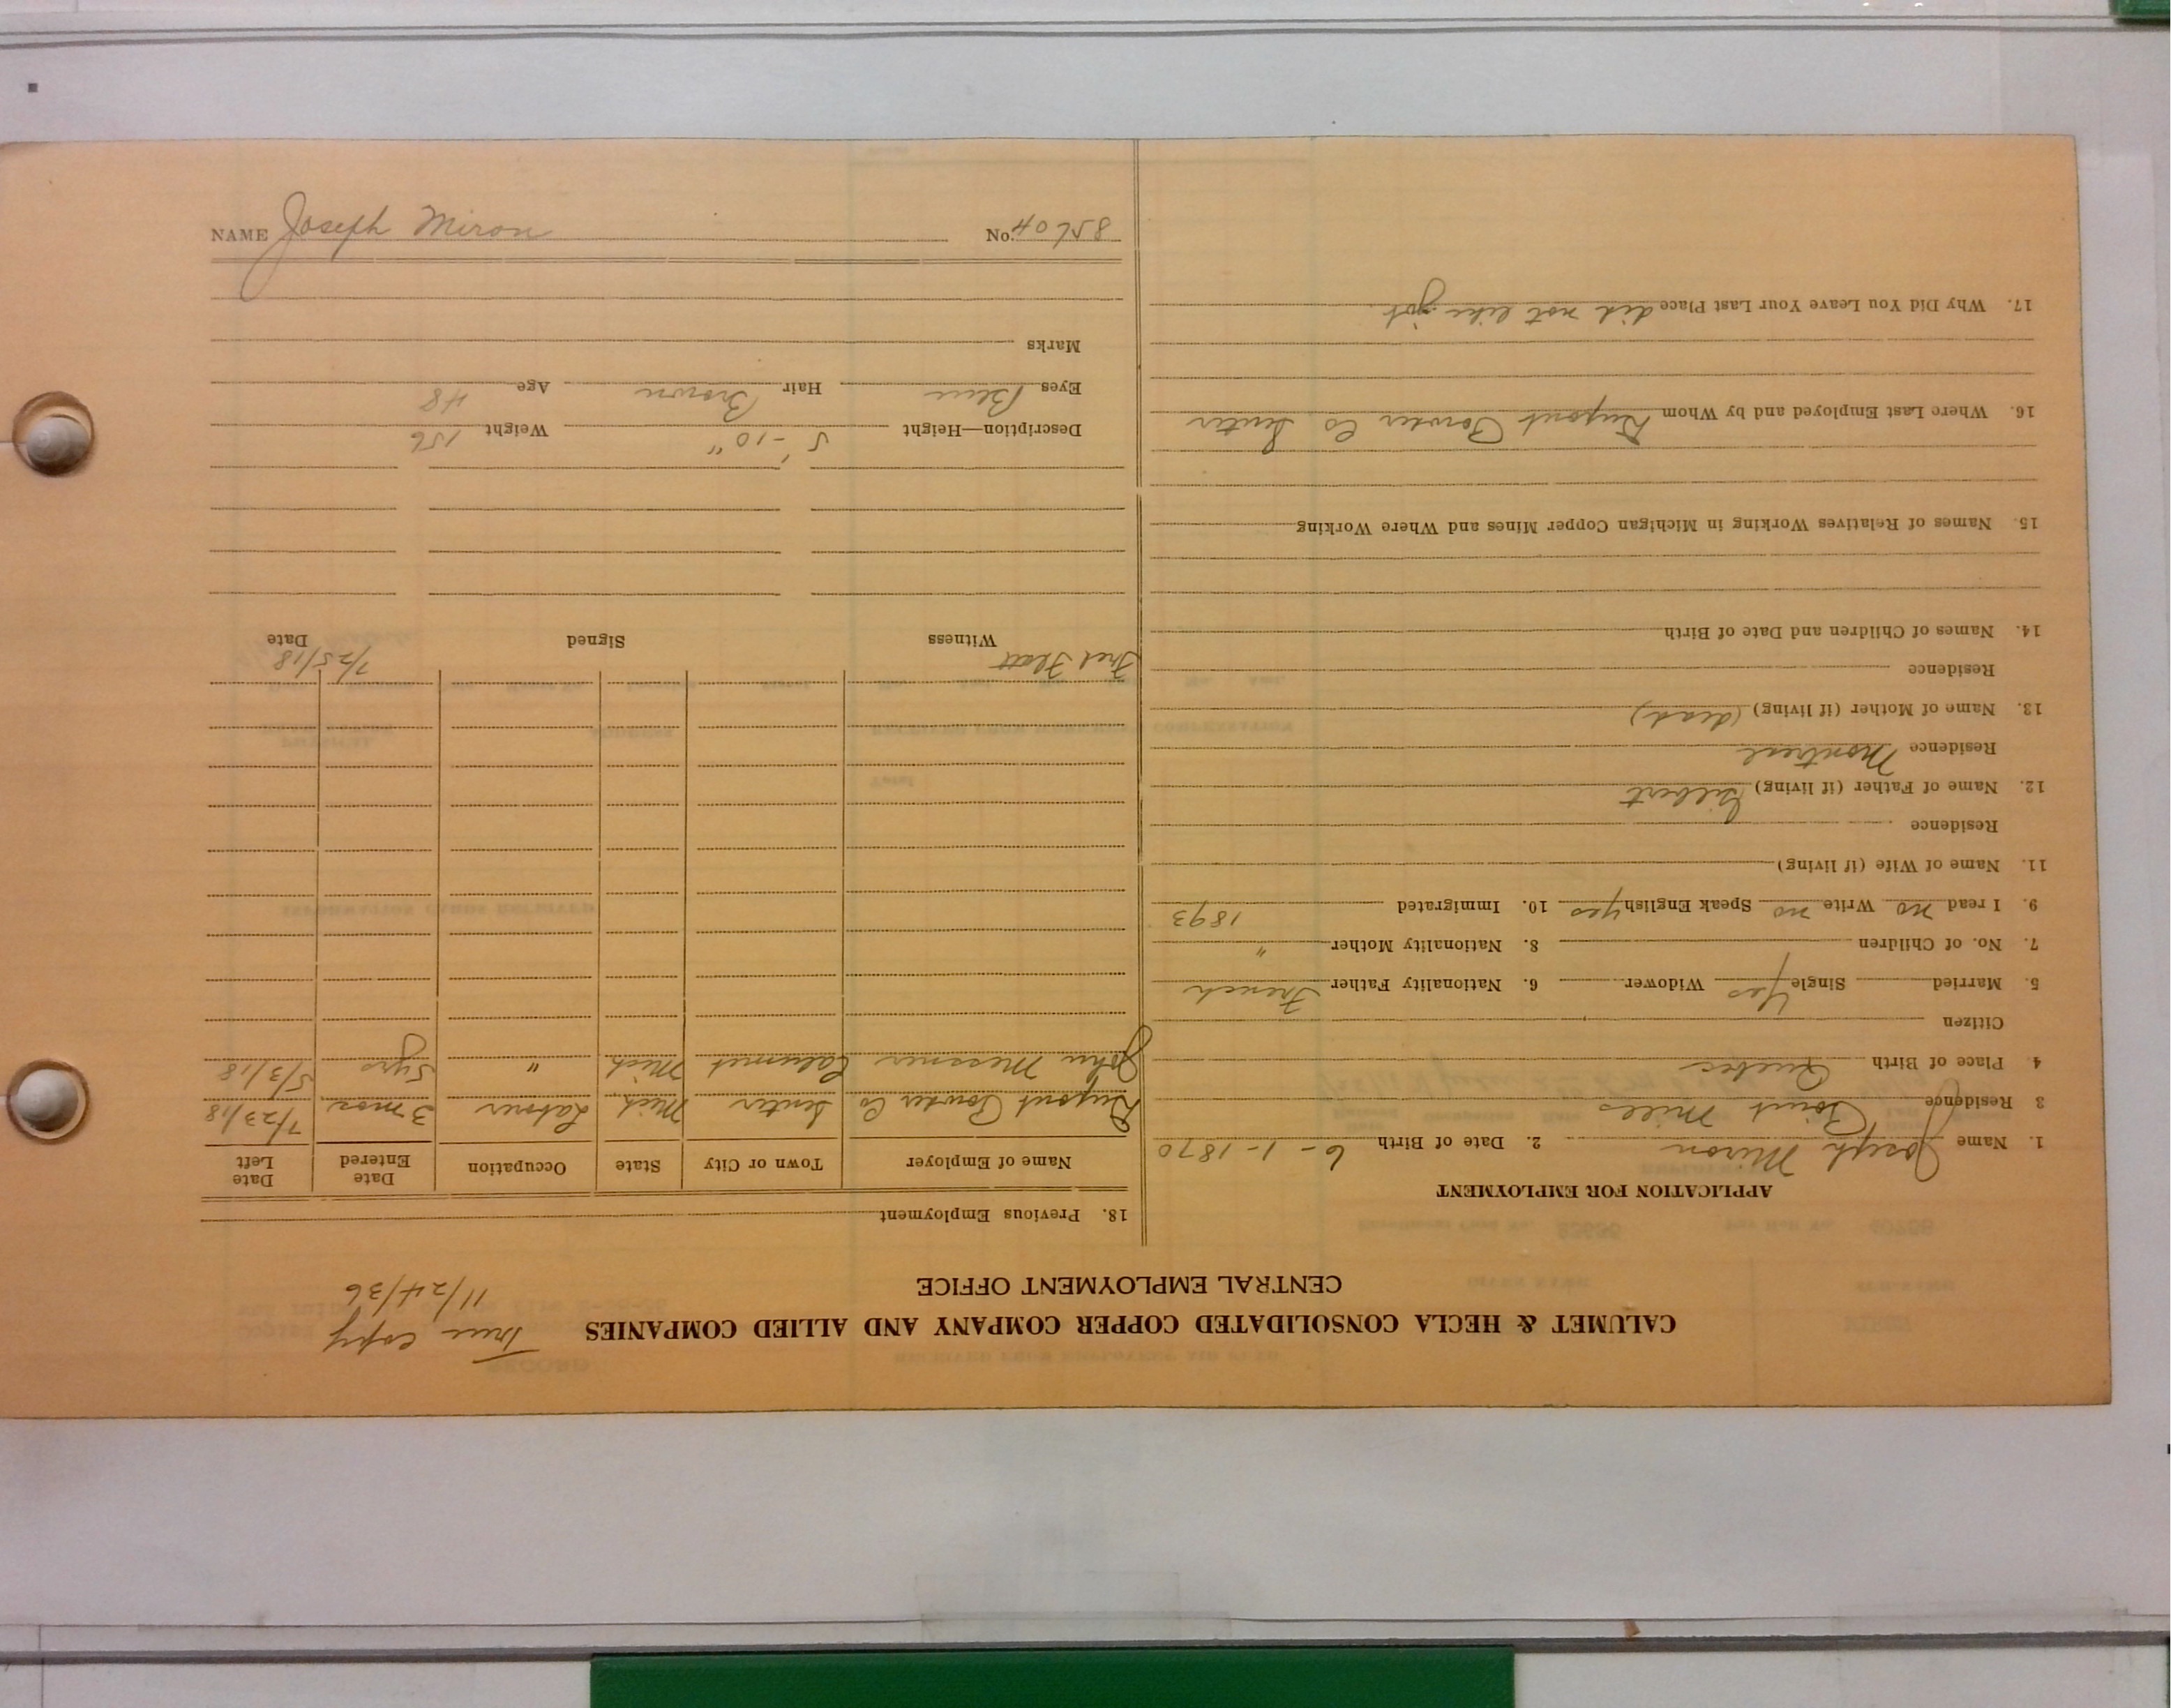 CALUMET & HECLA CONSOLIDATED COPPER COMPANY AND ALLIED COMPANIES
True copy
CENTRAL EMPLOYMENT OFFICE
11/24/36
APPLICATION FOR EMPLOYMENT
1. Name Joseph Miron 2. Date of Birth 6-1-1870
3 Residence Point Mills
4. Place of Birth Quebec
Citizen
5. Married Single Yes Widower 6. Nationality Father French
7. No. of Children 8. Nationality Mother "
9. I read no Write no Speak English yes 10. Immigrated 1893
11. Name of Wife (if living)
Residence
12. Name of Father (if living) Gilbert
Residence Montreal
13. Name of Mother (if living) (dead)
Residence
14. Names of Children and Date of Birth
15. Names of Relatives Working in Michigan Copper Mines and Where Working
16. Where Last Employed and by Whom Dupont Powder Co Senter
17. Why Did You Leave Your Last Place did not like job
18. Previous Employment
Name of Employer Town or City State Occupation Date Entered Date Left
Dupont Powder Co Senter Mich Laborer 3 mos 7/23/18
John Messner Calumet Mich " 5 yrs 5/3/18
Fred Flatt 7/25/18
Witness Signed Date
Description—Height 5'-10" Weight 156
Eyes Blue Hair Brown Age 48
Marks
NAME Joseph Miron No. 85604